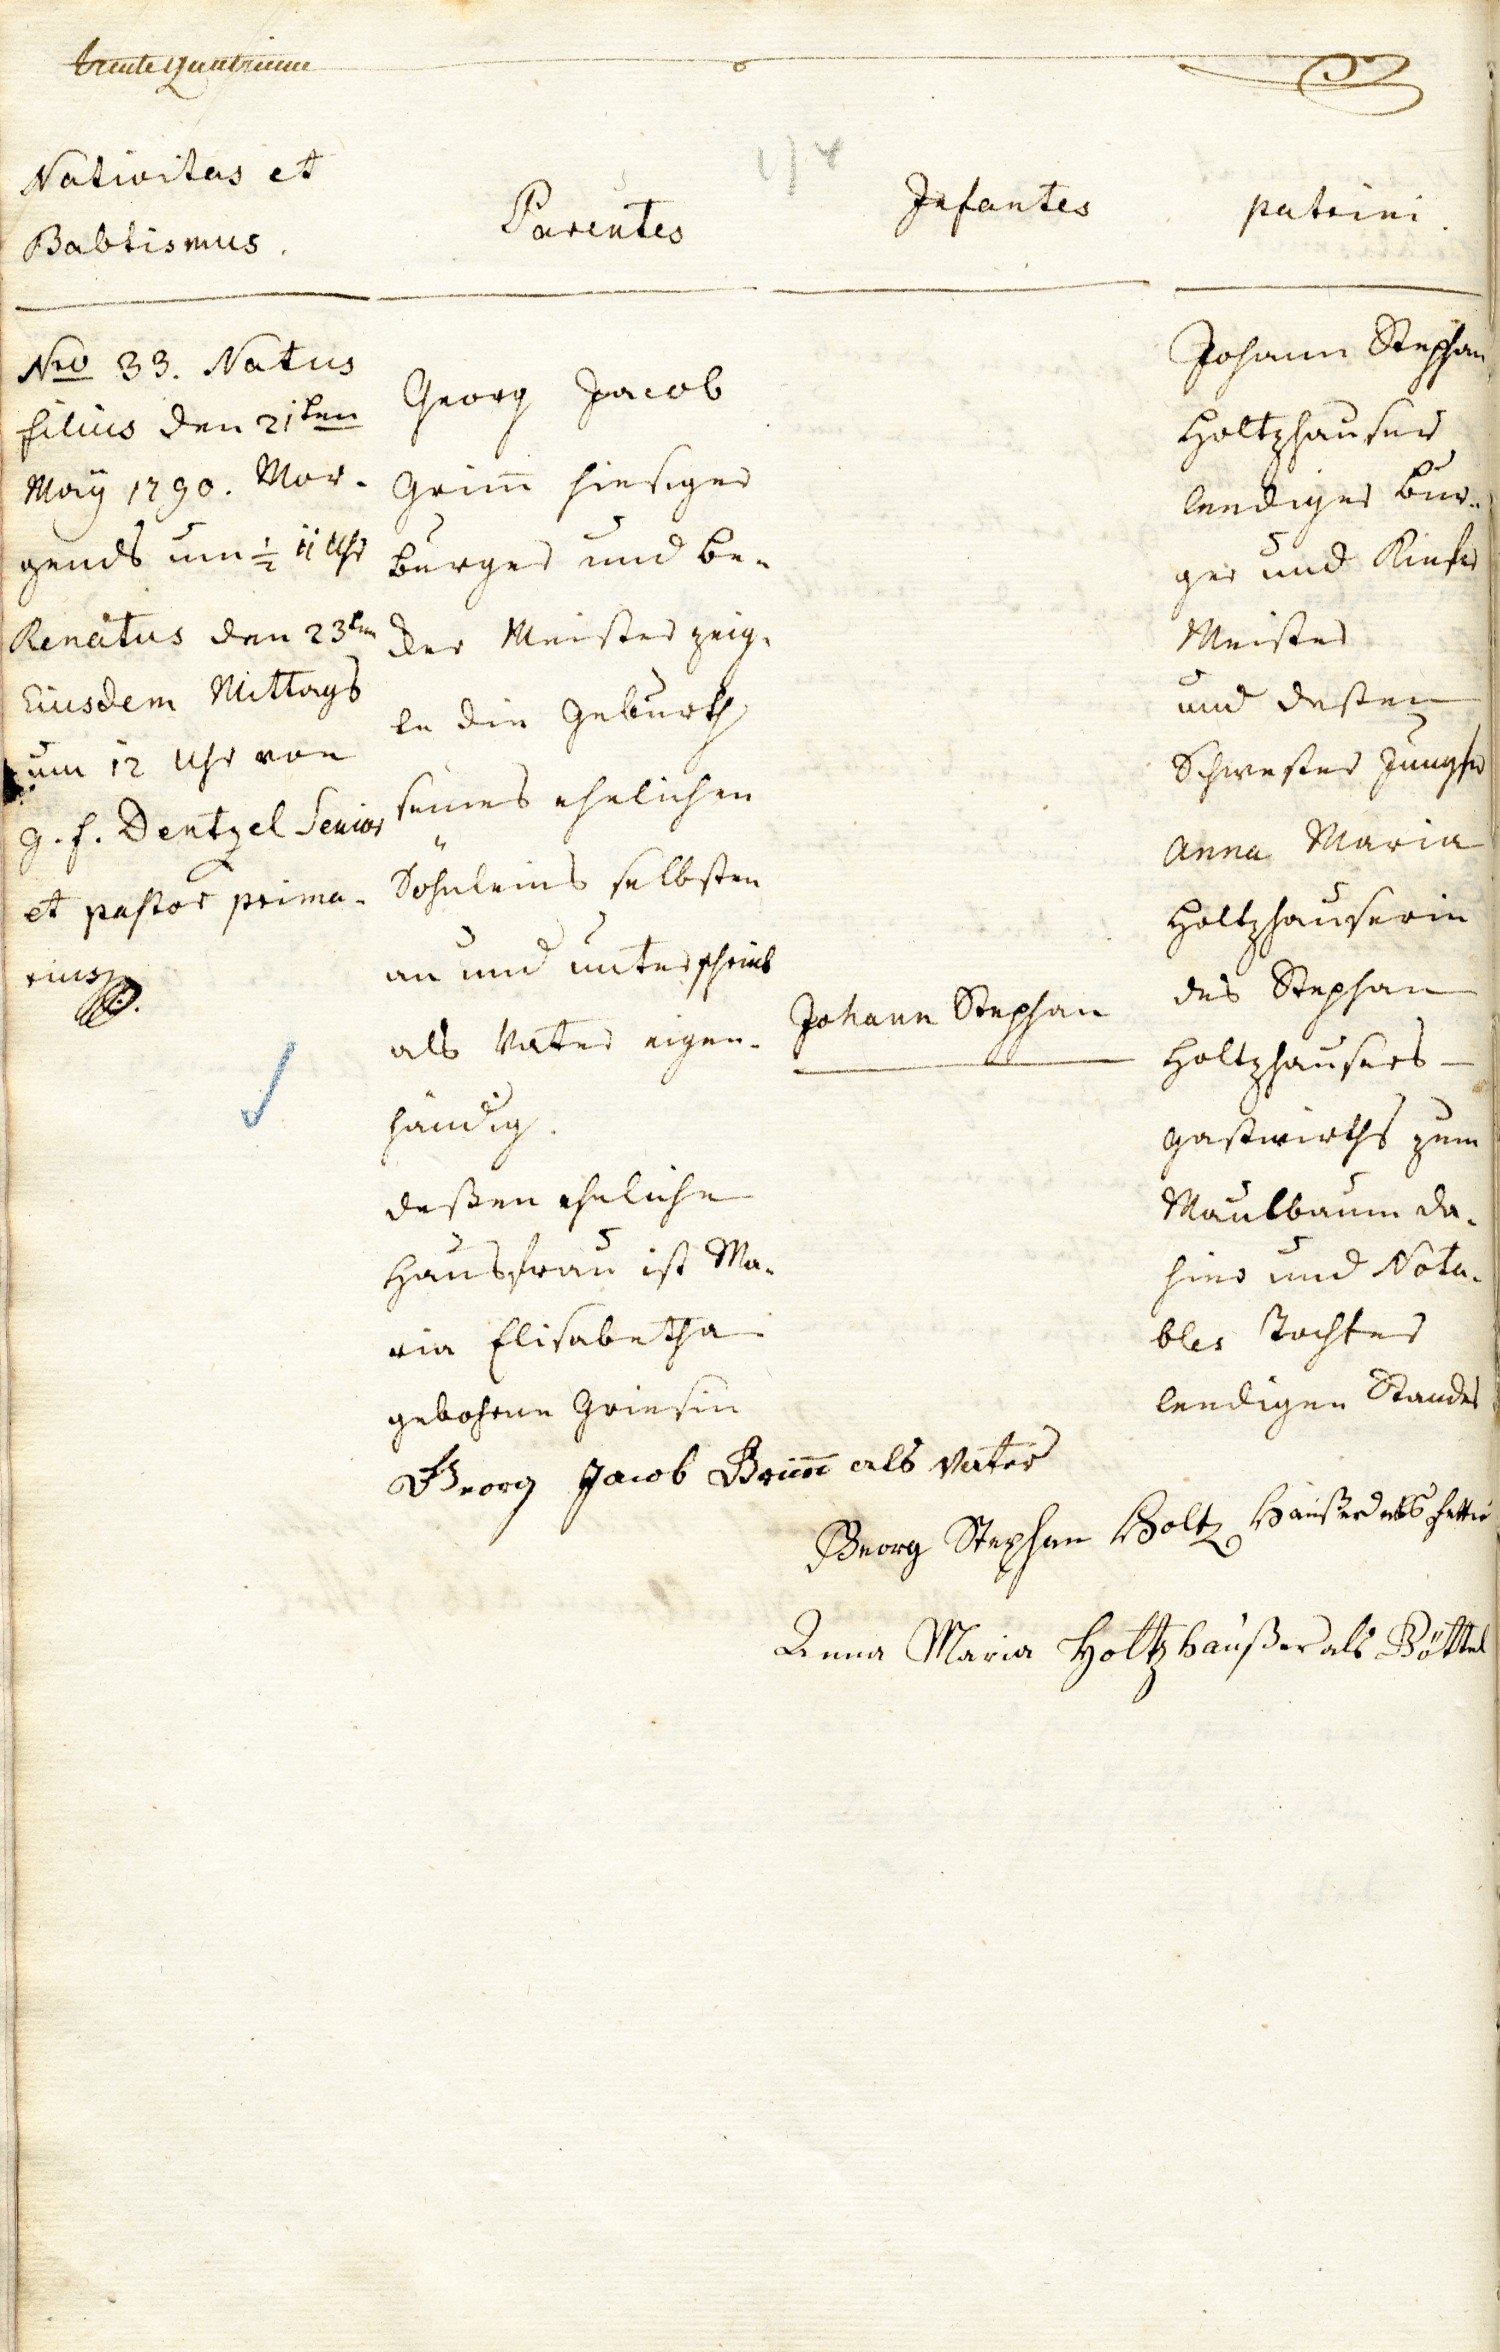 trente quatrieme
Nativitas et
Babtismus.
Parentes
Infantes
patrini.
Nro 33. Natus
filius den 21ten
Maÿ 1790. Mor-
gends um ½ 11 Uhr
Renatus den 23ten
Eiusdem Mittags
um 12 Uhr von
G. F. Dentzel Senior
et pastor prima-
rius
Georg Jacob
Grim̄ hiesiger
burger und be-
der Meister zeig-
te die Geburth
seines ehelichen
Söhnleins selbsten
an und unterschrieb
als Vater eigen-
händig.
deßen eheliche
Hausfrau ist Ma-
ria Elisabetha
gebohrne Griesin
Johann Stephan
Johann Stephan
Holtzhauser
leediger bur-
ger und Kiefer
Meister
und deßen
Schwester Jungfer
Anna Maria
Holtzhauserin
des Stephan
Holtzhausers
Gastwirths zum
Maulbaum da-
hier und Nota-
bles Tochter
leedigen Standes
Georg Jacob Grim̄ als Vater
Georg Stephan Holtz Haußer als Petter
Anna Maria Holtzhaußer als Göttel